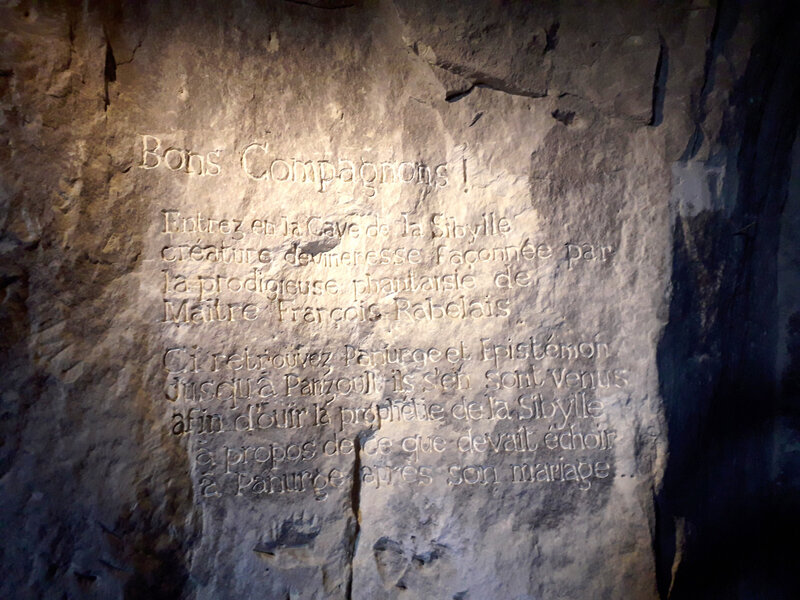 Bons Compagnons !
Entrez en la Cave de la Sibylle
créature devineresse façonnée par
la prodigieuse phantaisie de
Maître François Rabelais
Ci retrouvez Panurge et Epistémon
Jusqu'à Panzoult ils s'en sont venus
afin d'ouïr la prophétie de la Sibylle
à propos de ce que devait échoir
à Panurge après son mariage...